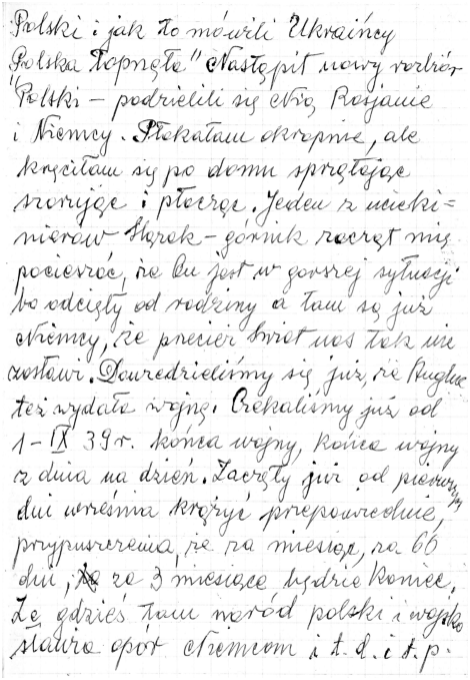 Polski i jak to mówili Ukraińcy
„Polska łapnęła" Nastąpił nowy rozbiór
Polski – podzielili się Nią Rosjanie
i Niemcy. Płakałam okropnie, ale
kręciłam się po domu sprzątając
szorując i płacząc. Jeden z ucieki=
nierów Ślązak – górnik zaczął mię
pocieszać, że On jest w gorszej sytuacji
bo odcięty od rodziny a tam są już
Niemcy, że przecież świat nas tak nie
zostawi. Dowiedzieliśmy się już, że Anglia
też wydała wojnę. Czekaliśmy już od
1 – IX 39 r. końca wojny, końca wojny
z dnia na dzień. Zaczęły już od pierwszych
dni września krążyć przepowiednie,
przypuszczenia, że za miesiąc, za 60
dni, za 3 miesiące będzie koniec,
że gdzieś tam naród polski i wojsko
stawia opór Niemcom i t. d. i t. p.